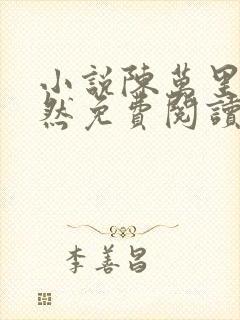 小說陳萬里
然免費閱讀
李善昌